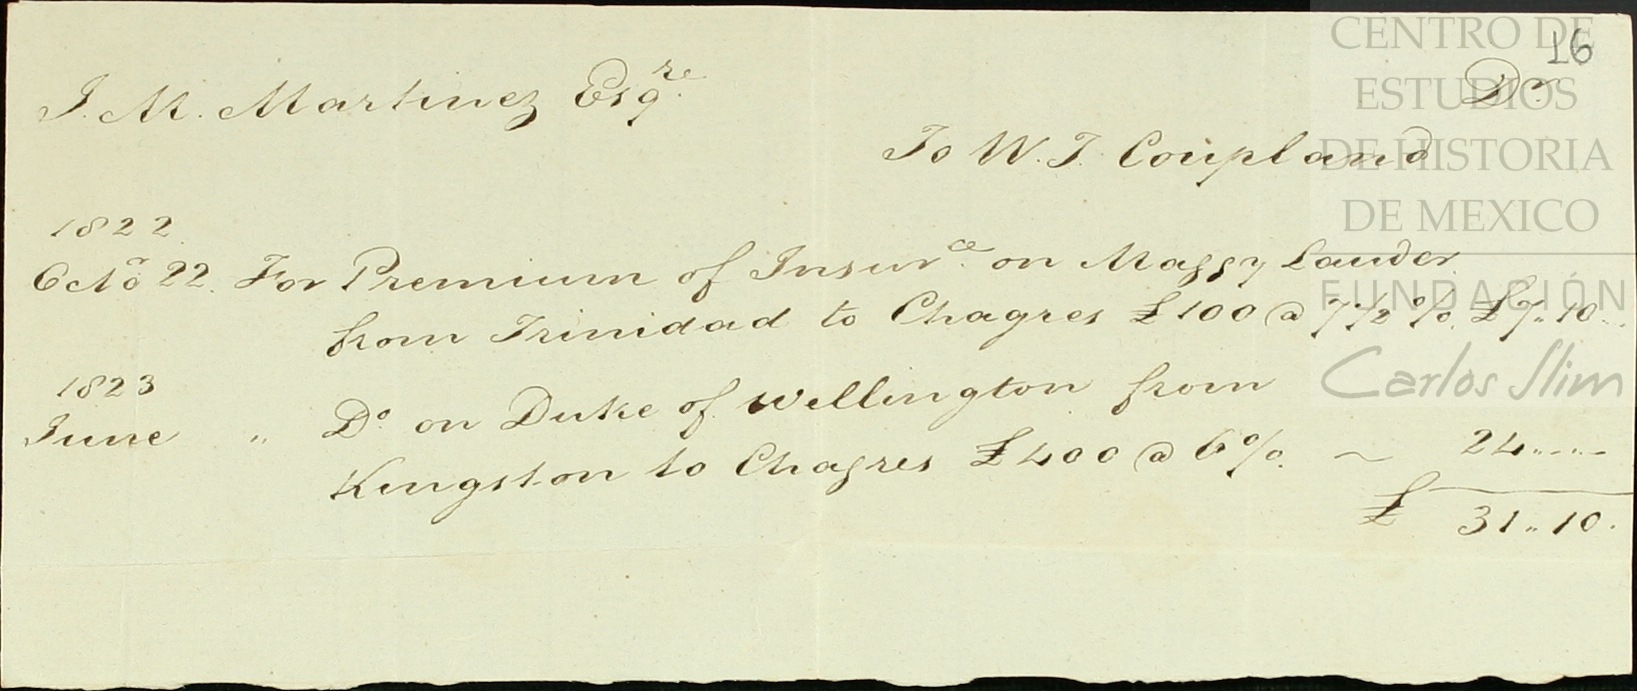 16
J. M. Martinez Esqre. Dr.
To W. T. Coupland
1822
Octo 22. For Premium of Insurce. on Maggy Lauder
from Trinidad to Chagres £100 @ 7 1/2 % £7..10...
1823
June " Do on Duke of Wellington from
Kingston to Chagres £400 @ 6%. ~ 24.....
£ 31..10.
CENTRO DE
ESTUDIOS
DE HISTORIA
DE MEXICO
FUNDACIÓN
Carlos Slim